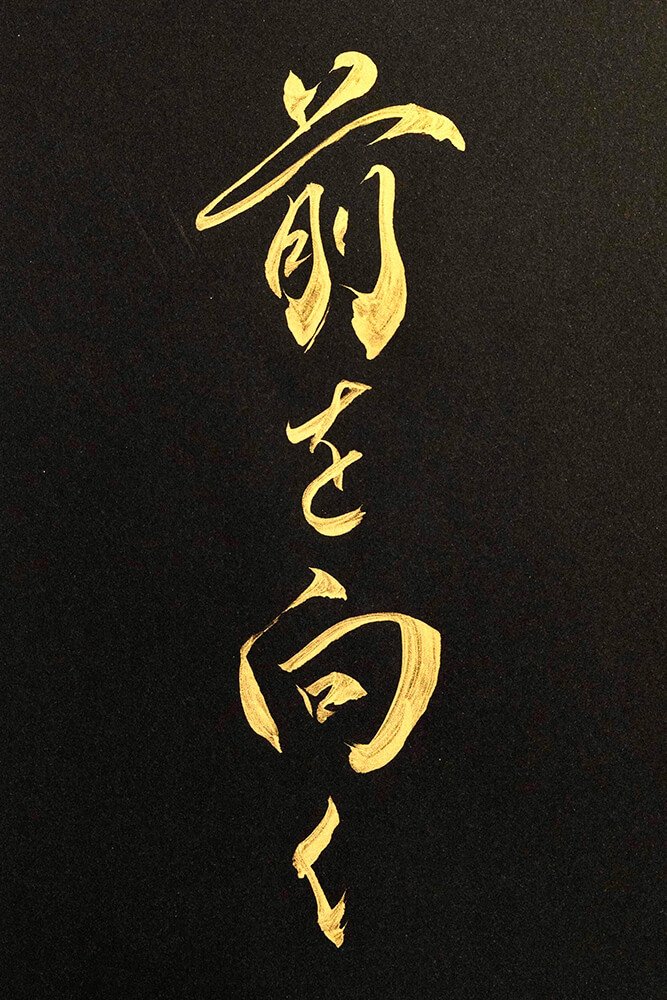 前を向く